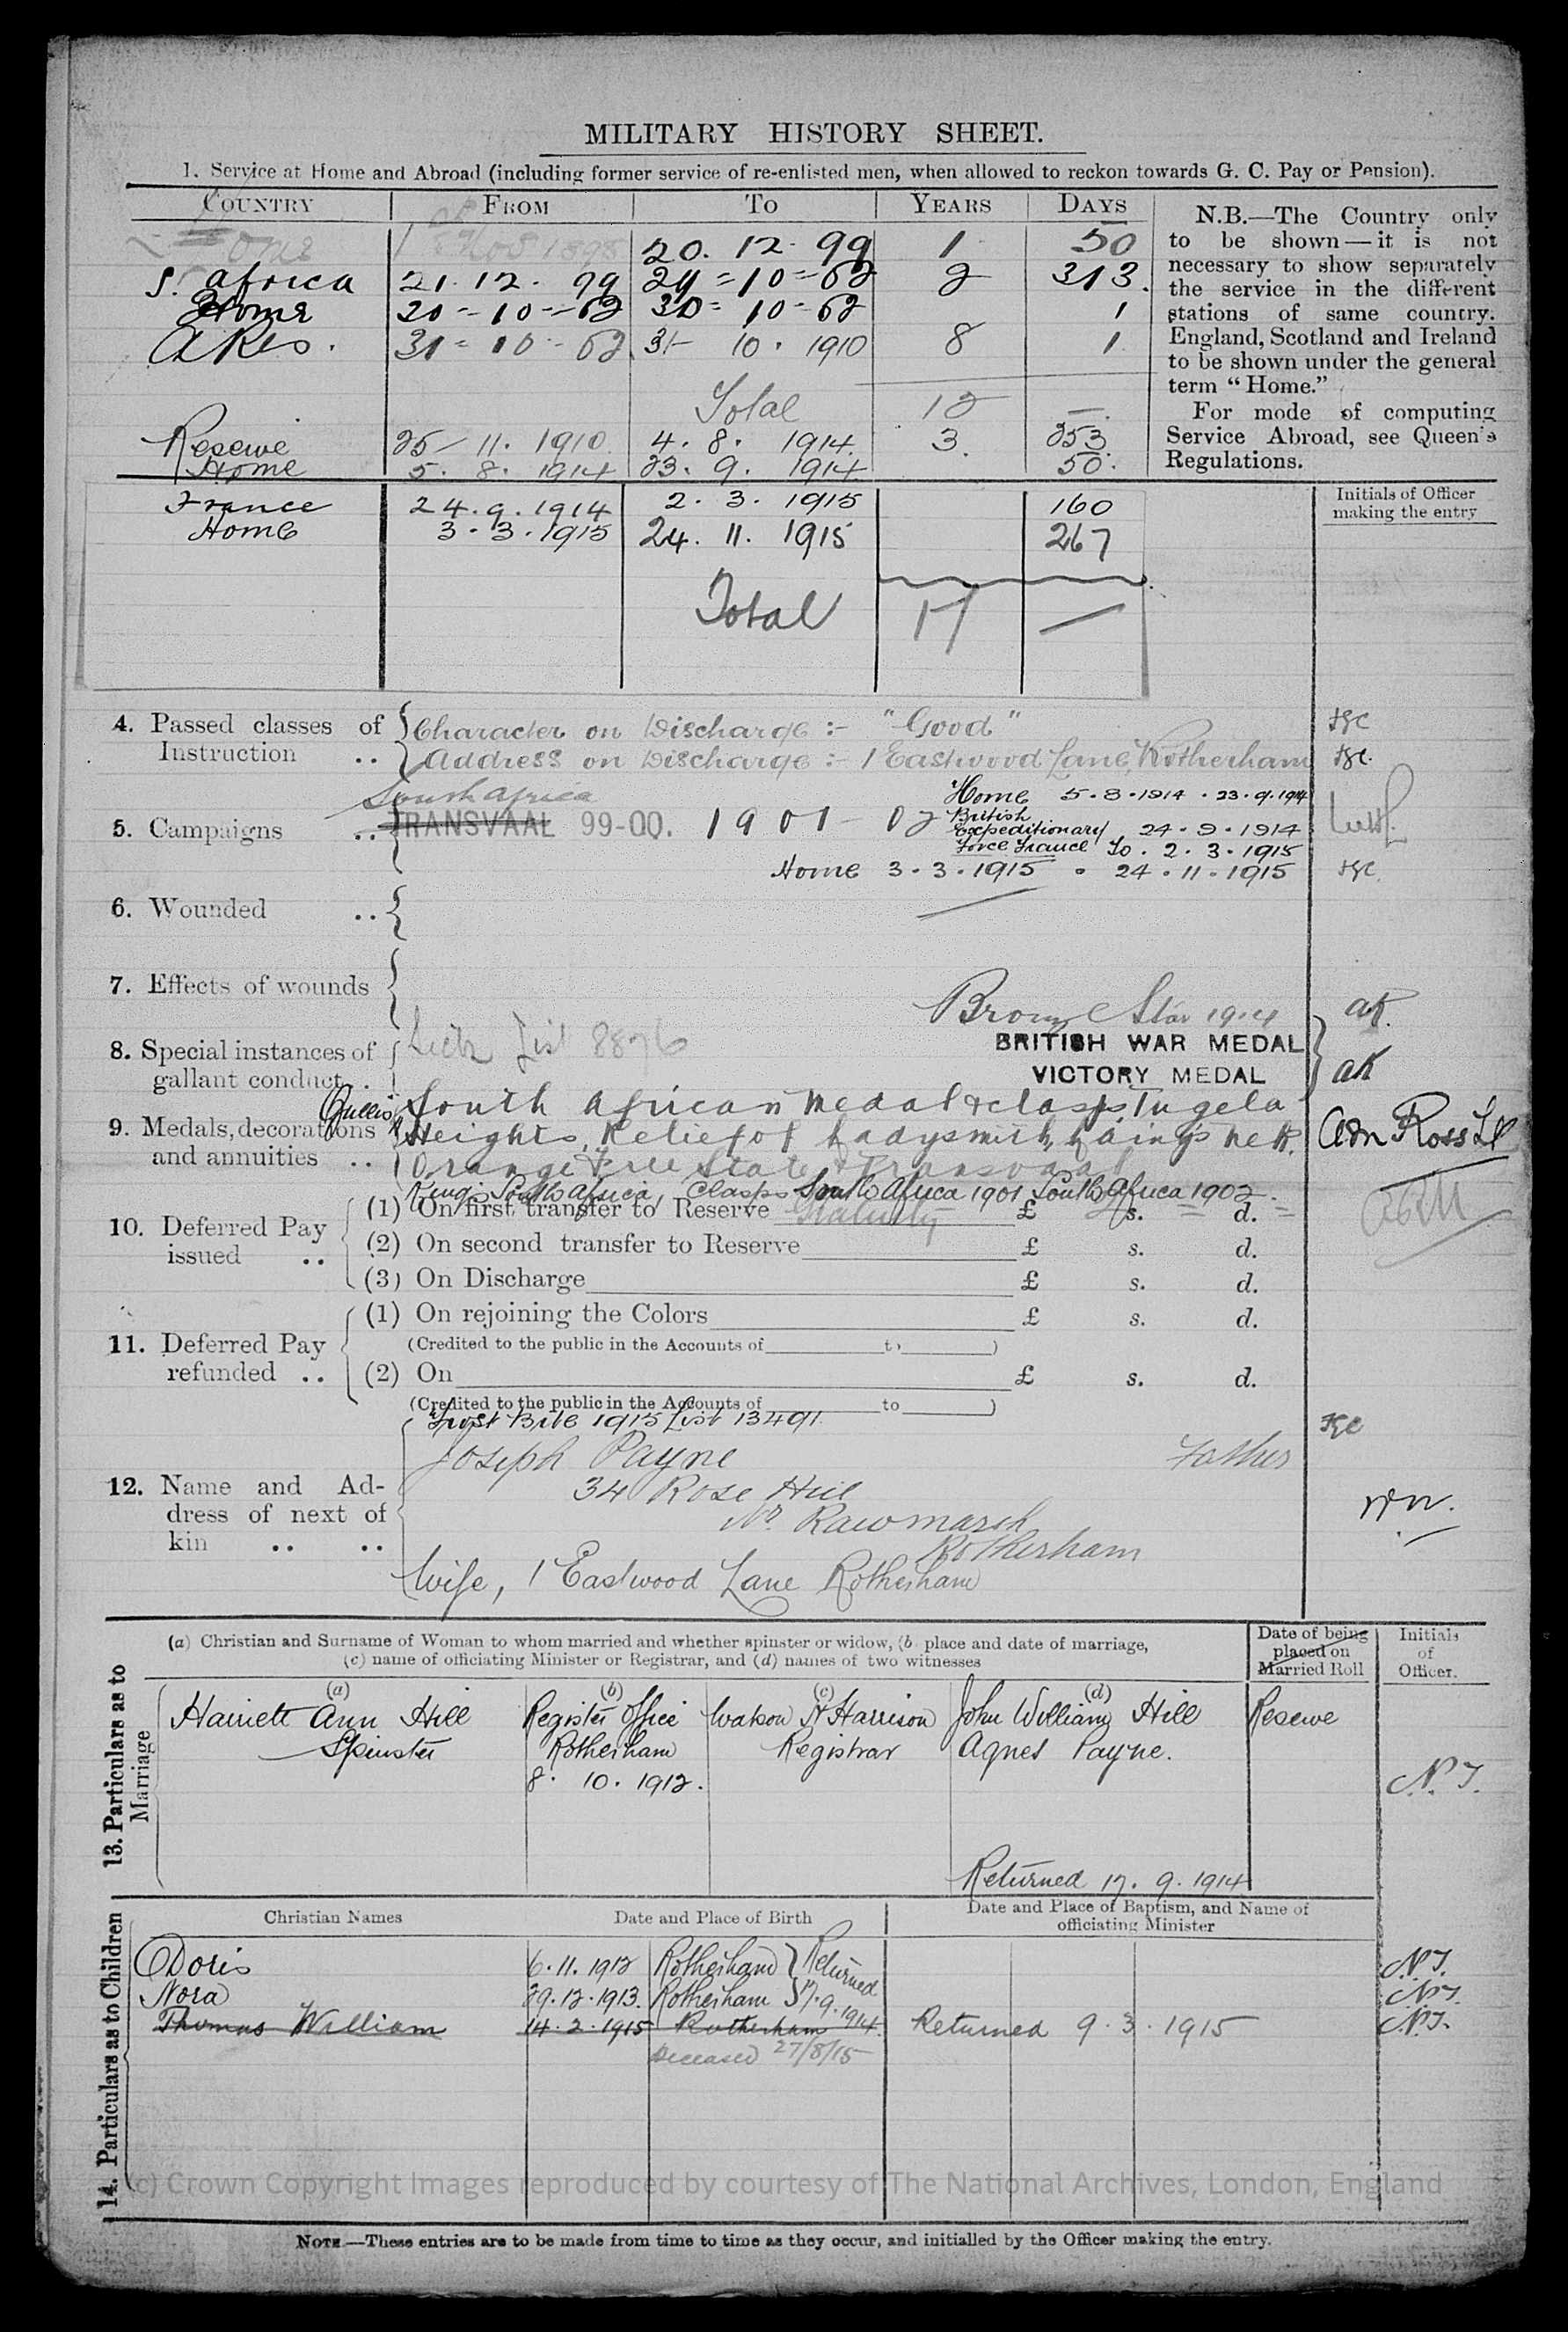 MILITARY HISTORY SHEET.
1. Service at Home and Abroad (including former service of re-enlisted men, when allowed to reckon towards G. C. Pay or Pension).
COUNTRY FROM TO YEARS DAYS
Home Nov 1898 20. 12. 99 1 50
S. Africa 21. 12. 99 29=10=02 2 313.
Home 30=10=02 30=10=02 1
A Res. 31=10=02 31 10. 1910 8 1
Total 12 —
Reserve 25 11. 1910 4. 8. 1914 3. 253
Home 5. 8. 1914 23. 9. 1914 50.
N.B.—The Country only
to be shown—it is not
necessary to show separately
the service in the different
stations of same country.
England, Scotland and Ireland
to be shown under the general
term "Home."
For mode of computing
Service Abroad, see Queen's
Regulations.
Initials of Officer
making the entry
France 24.9.1914 2. 3. 1915 160
Home 3. 3. 1915 24. 11. 1915 267
Total 17 —
4. Passed classes of Instruction .. Character on Discharge :- "Good"
Address on Discharge :- 1 Eastwood Lane, Rotherham
5. Campaigns .. South Africa
TRANSVAAL 99-00. 1901-02
Home 5.8.1914 . 23.9.1914
British
Expeditionary 24.9.1914
Force France To. 2. 3. 1915
Home 3.3.1915 . 24.11.1915
6. Wounded ..
7. Effects of wounds
8. Special instances of
gallant conduct ..
List 8876
Bronze Star 1914 AK.
BRITISH WAR MEDAL
VICTORY MEDAL AK
9. Medals, decorations
and annuities ..
South African Medal & clasps Tugela
Heights, Relief of Ladysmith, Laing's Nek. Ross Lt
Orange Free State & Transvaal
King's South Africa, Clasps South Africa 1901 South Africa 1902.
10. Deferred Pay
issued ..
(1) On first transfer to Reserve Gratuity £ s. d.
(2) On second transfer to Reserve £ s. d.
(3) On Discharge £ s. d.
11. Deferred Pay
refunded ..
(1) On rejoining the Colors £ s. d.
(Credited to the public in the Accounts of to )
(2) On £ s. d.
(Credited to the public in the Accounts of to )
Frost Bite 1915 List 13491
12. Name and Ad-
dress of next of
kin .. ..
Joseph Payne Father
34 Rose Hill
Nr. Rawmarsh
Rotherham
Wife, 1 Eastwood Lane Rotherham
13. Particulars as to
Marriage
(a) Christian and Surname of Woman to whom married and whether spinster or widow, (b place and date of marriage,
(c) name of officiating Minister or Registrar, and (d) names of two witnesses
Date of being
placed on
Married Roll
Initials
of
Officer.
(a) (b) (c) (d)
Harriett Ann Hill Register Office Watson N Harrison John William Hill Reserve
Spinster Rotherham Registrar Agnes Payne.
8. 10. 1912. N.J.
Returned 17. 9. 1914
14. Particulars as to Children
Christian Names Date and Place of Birth Date and Place of Baptism, and Name of
officiating Minister
Doris 6.11.1912 Rotherham Returned N.J.
Nora 29.12.1913. Rotherham 17.9.1914 N.J.
Thomas William 14.2.1915 Rotherham Returned 9.3.1915 N.J.
Deceased 27/8/15
(c) Crown Copyright Images reproduced by courtesy of The National Archives, London, England
NOTE.—These entries are to be made from time to time as they occur, and initialled by the Officer making the entry.